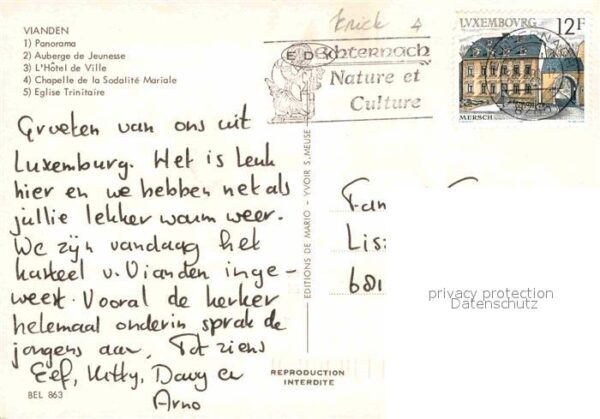 VIANDEN
1) Panorama
2) Auberge de Jeunesse
3) L'Hôtel de Ville
4) Chapelle de la Sodalité Mariale
5) Eglise Trinitaire
4
Echternach
Nature et
Culture
LUXEMBOURG 12F
MERSCH
Groeten van ons uit
Luxemburg. Het is leuk
hier en we hebben net als
jullie lekker warm weer.
We zijn vandaag het
kasteel v. Vianden inge-
weest. Vooral de kerker
helemaal onderin sprak de
jongens aan. Tot ziens
Eef, Kitty, Davy en
Arno
BEL 863
EDITIONS DE MARIO - YVOIR S. MEUSE
REPRODUCTION
INTERDITE
Fam
Lis
681
privacy protection
Datenschutz